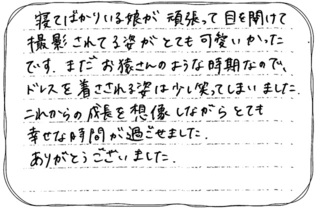 寝てばかりいる娘が頑張って目を開けて
撮影されてる姿がとても可愛いかった
です。まだお猿さんのような時期なので、
ドレスを着させられる姿は少し笑ってしまいました。
これからの成長を想像しながらとても
幸せな時間が過ごせました。
ありがとうございました。